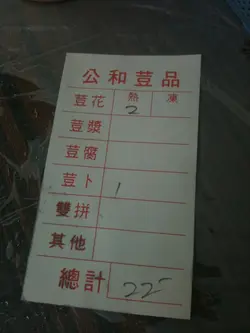 公和荳品
荳花 熱 凍
2
荳漿
荳腐
荳卜 1
雙拼
其他
總計 22-